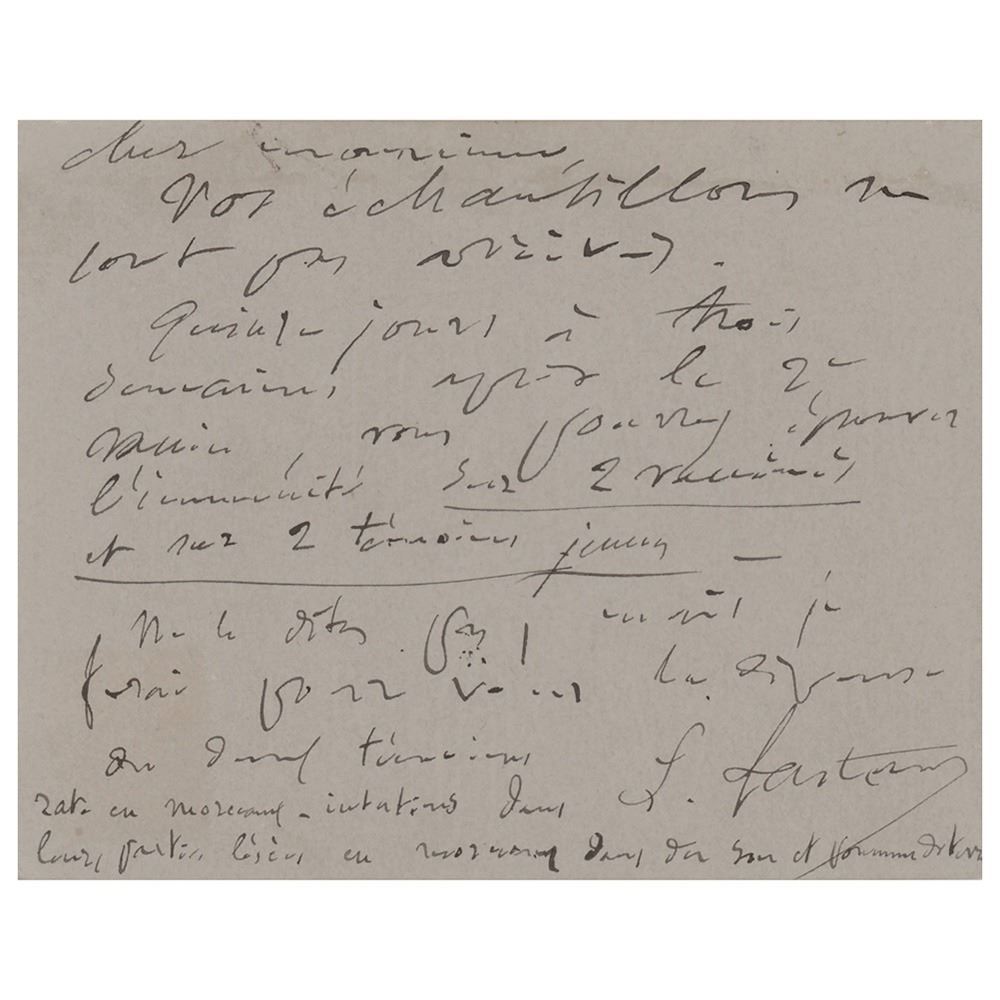 cher monsieur,
Vos échantillons ne
sont pas arrivés.
Quinze jours à trois
semaines après le 2e
vaccin, vous pourrez éprouver
l'immunité sur 2 vaccinés
et sur 2 témoins jeunes –
Ne le dites pas, mais je
ferai pour vous la dépense
des deux témoins
L. Pasteur
rate en morceaux - intestins dans
leurs parties lésées en morceaux dans du son et